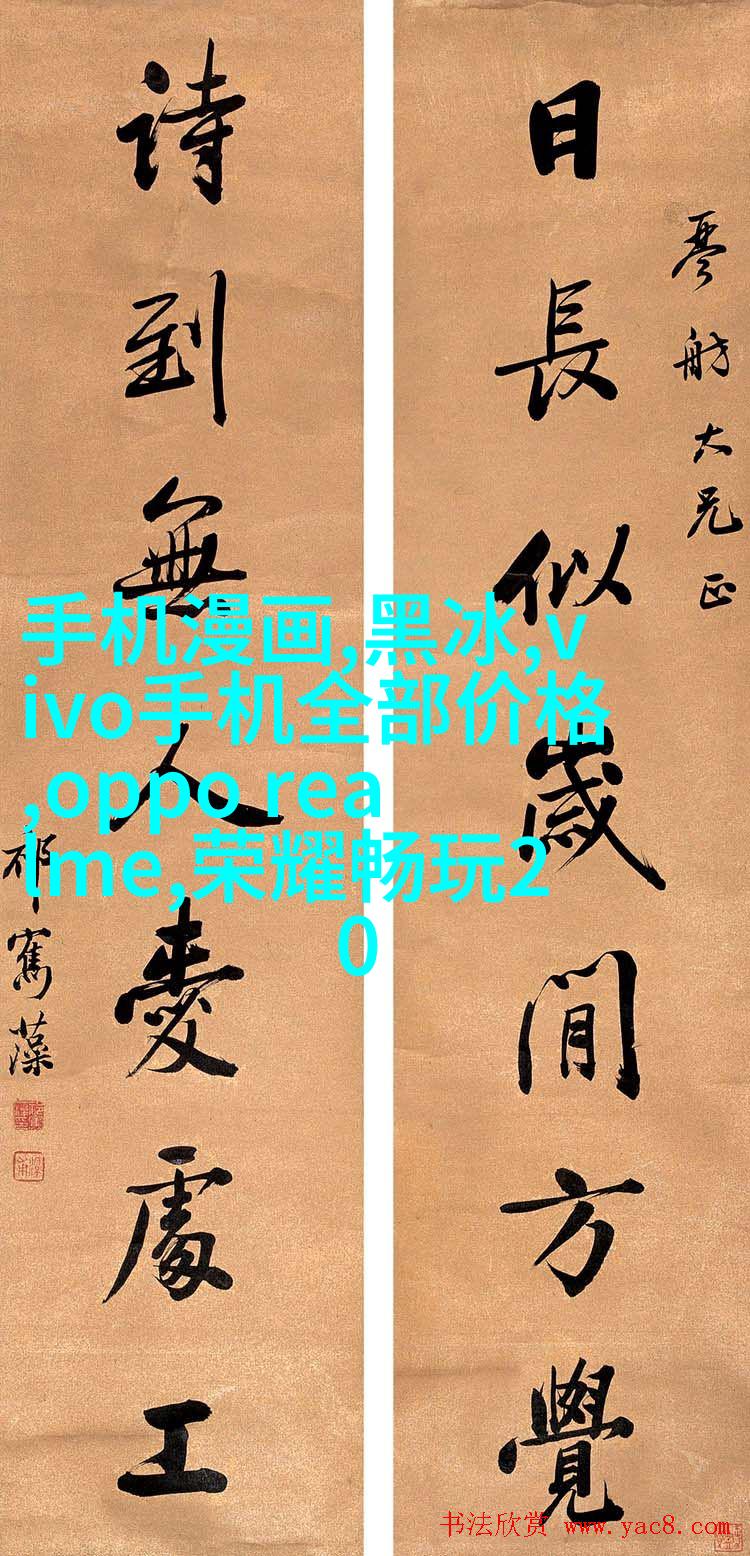 琴舫大兄正
日長似歲閒方覺
詩到無人愛處工
祁寯藻
手机漫画,黑冰,v
ivo手机全部价格
,oppo rea
lme,荣耀畅玩2
0
书法欣赏 www.yac8.com